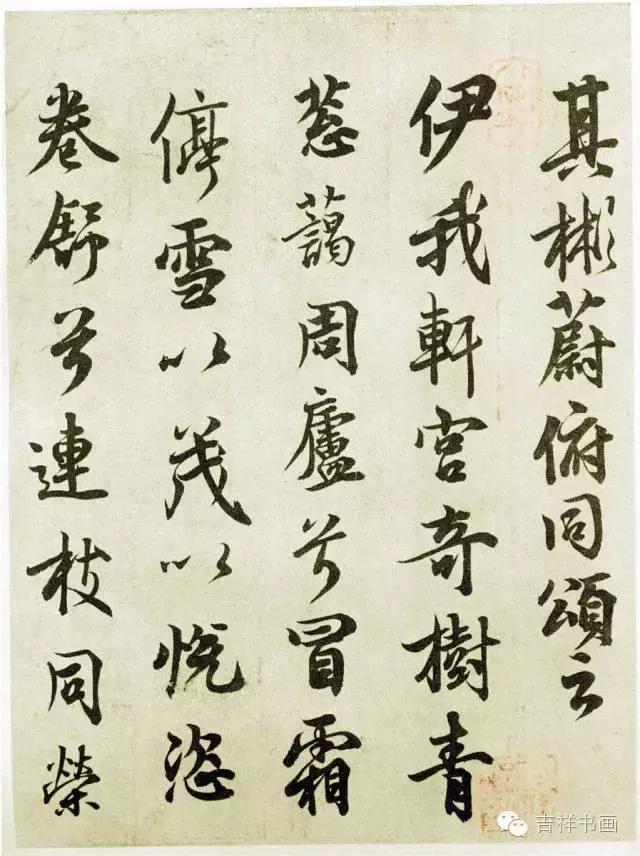 其彬蔚俯同頌云
伊我軒宫奇樹青
葱藹周廬兮冒霜
停雪以茂以悦恣
卷舒兮連枝同榮
吉祥书画